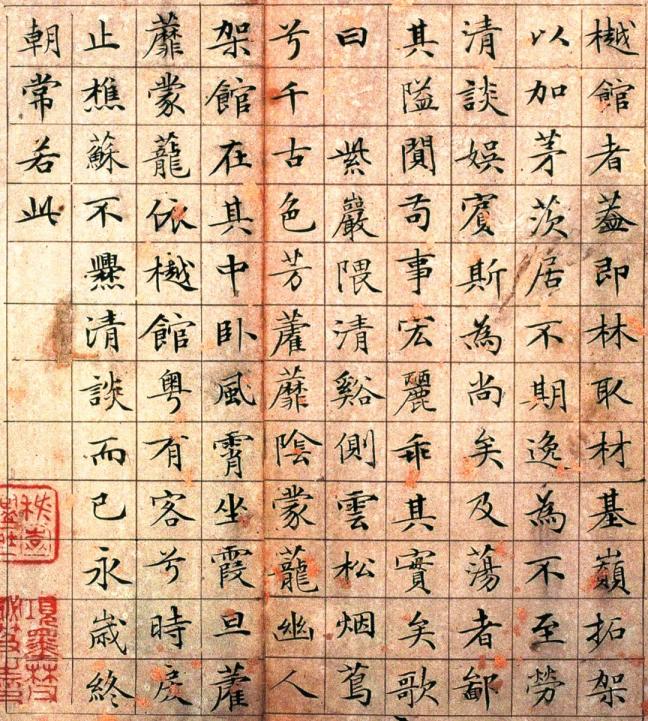 樾館者蓋即林取材基巔拓架
以加茅茨居不期逸為不至勞
清談娛賓斯為尚矣及蕩者鄙
其隘闃苟事宏麗乖其實矣歌
曰 紫巖隈清谿側雲松烟蔦
兮千古色芳藿蘼陰蒙蘢幽人
架館在其中卧風霄坐霞旦藿
蘼蒙蘢依樾館粵有客兮時戾
止樵蘇不爨清談而已永歲終
朝常若此